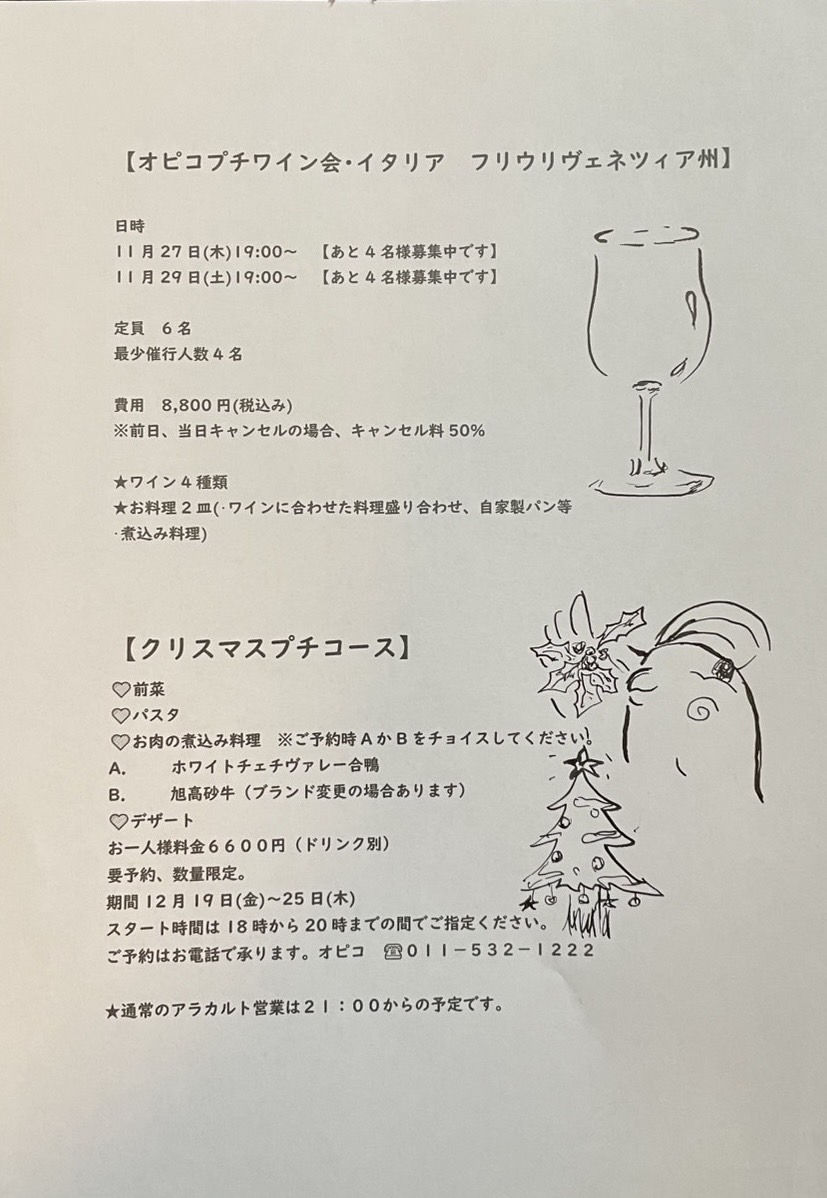 【オピコプチワイン会・イタリア　フリウリヴェネツィア州】
日時
11月27日(木)19:00～　【あと4名様募集中です】
11月29日(土)19:00～　【あと4名様募集中です】
定員　6名
最少催行人数4名
費用　8,800円(税込み)
※前日、当日キャンセルの場合、キャンセル料50%
★ワイン4種類
★お料理2皿(・ワインに合わせた料理盛り合わせ、自家製パン等
・煮込み料理)
【クリスマスプチコース】
♡前菜
♡パスタ
♡お肉の煮込み料理　※ご予約時AかBをチョイスしてください。
A.　　ホワイトチェチヴァレー合鴨
B.　　旭高砂牛（ブランド変更の場合あります）
♡デザート
お一人様料金６６００円（ドリンク別）
要予約、数量限定。
期間12月19日(金)～25日(木)
スタート時間は18時から20時までの間でご指定ください。
ご予約はお電話で承ります。オピコ　☎０１１－５３２－１２２２
★通常のアラカルト営業は２１：００からの予定です。